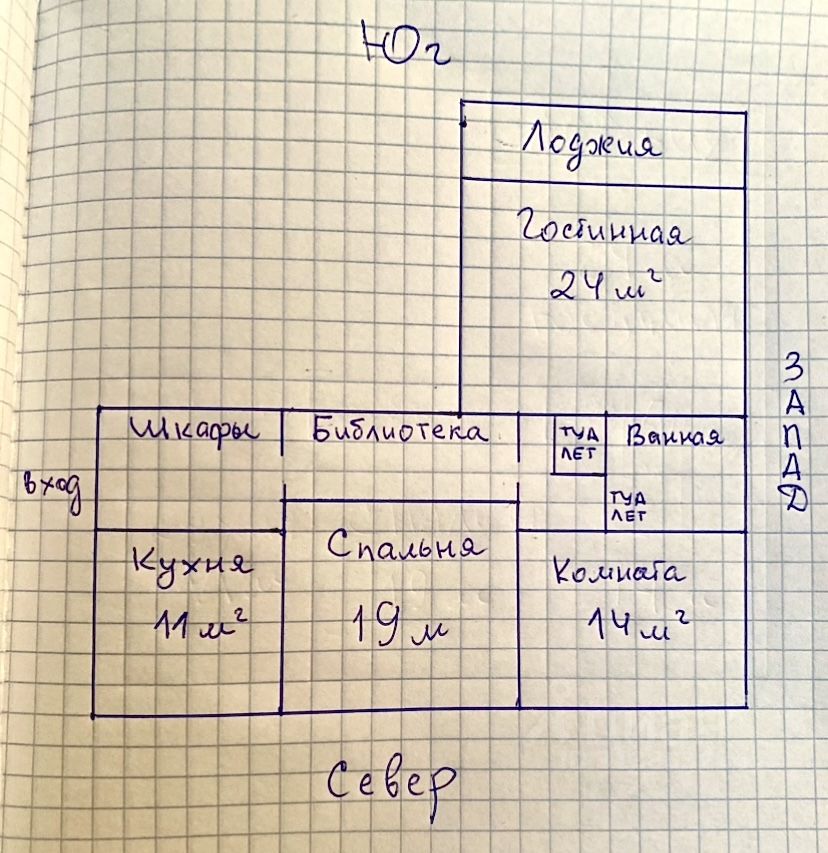 Юг
Лоджия
Гостинная
24 м²
ЗАПАД
Шкафы
Библиотека
ТУА
ЛЕТ
Ванная
вход
ТУА
ЛЕТ
Кухня
11 м²
Спальня
19 м
Комната
14 м²
Север